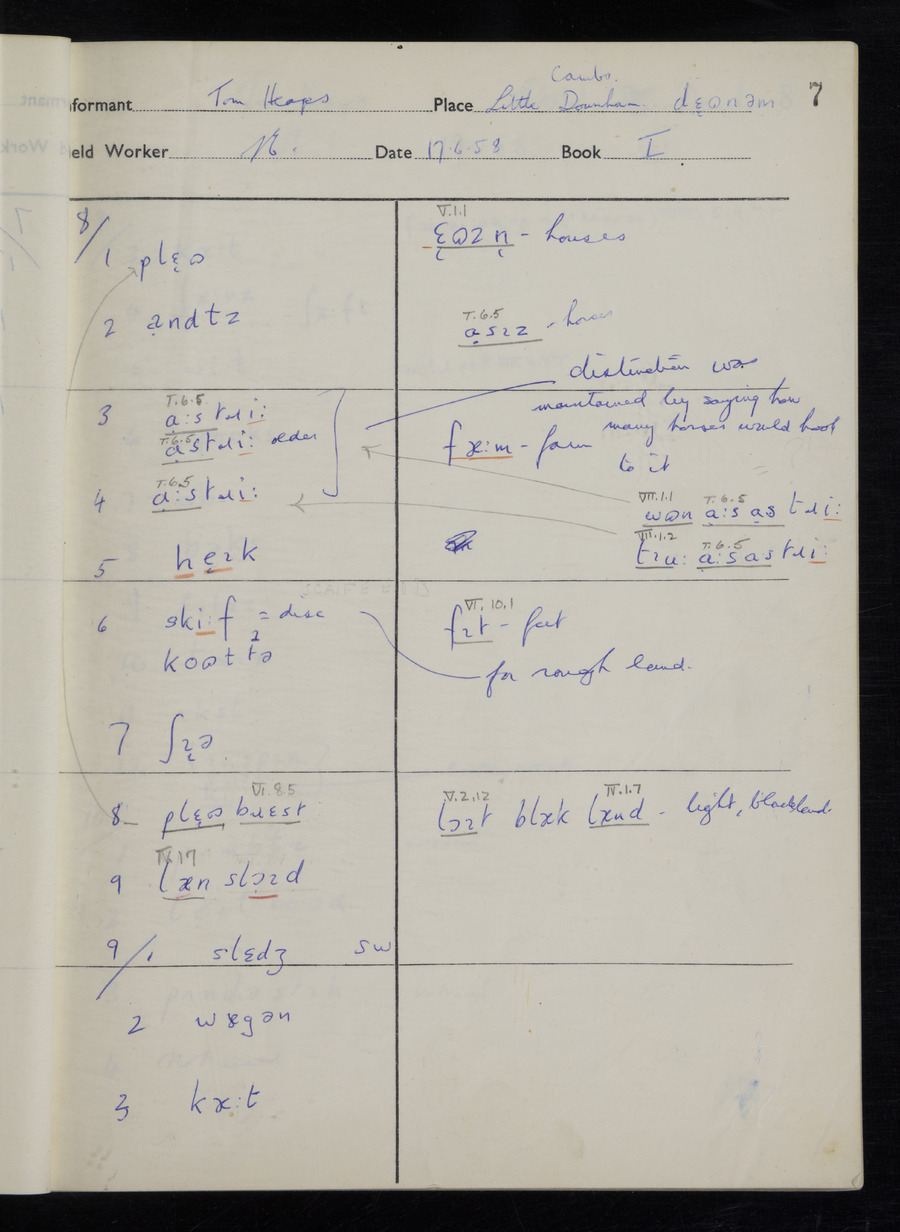 Cambs.
Informant Tom Heaps Place Little Downham dɛ̨ʊnəm 7
Field Worker Date 17.6.58 Book I
8/
1 plɛ̨ʊ
2 a̜ndtz
3 I.6.5 a̜:stɹi:
I.6.5 a̜stɹi: older
4 I.6.5 a̜:stɹi:
5 he̜ɪk
6 ski:f = disc
kʊʊtə
7 ʃɪ̨ə
8 plɛ̨ʊ bɹɛst VI.8.5
9 IV.1.7 læn slɔɪd
9/1 slɛdʒ SW
2 wægən
3 kæ:t
V.1.1
ɛ̨ʊzn̩ - houses
I.6.5
a̜sɪz - horses
distinction was
maintained by saying how
many horses would hook
to it
fæ:m - farm
VII.1.1 I.6.5
wʊn a̜:s a̜s tɹi:
VII.1.2 I.6.5
tɪu: a̜:s a̜stɹi:
VI.10.1
fɪt - feet
for rough land.
V.2.12 IV.1.7
lɔɪt blæk lænd - light, blackland